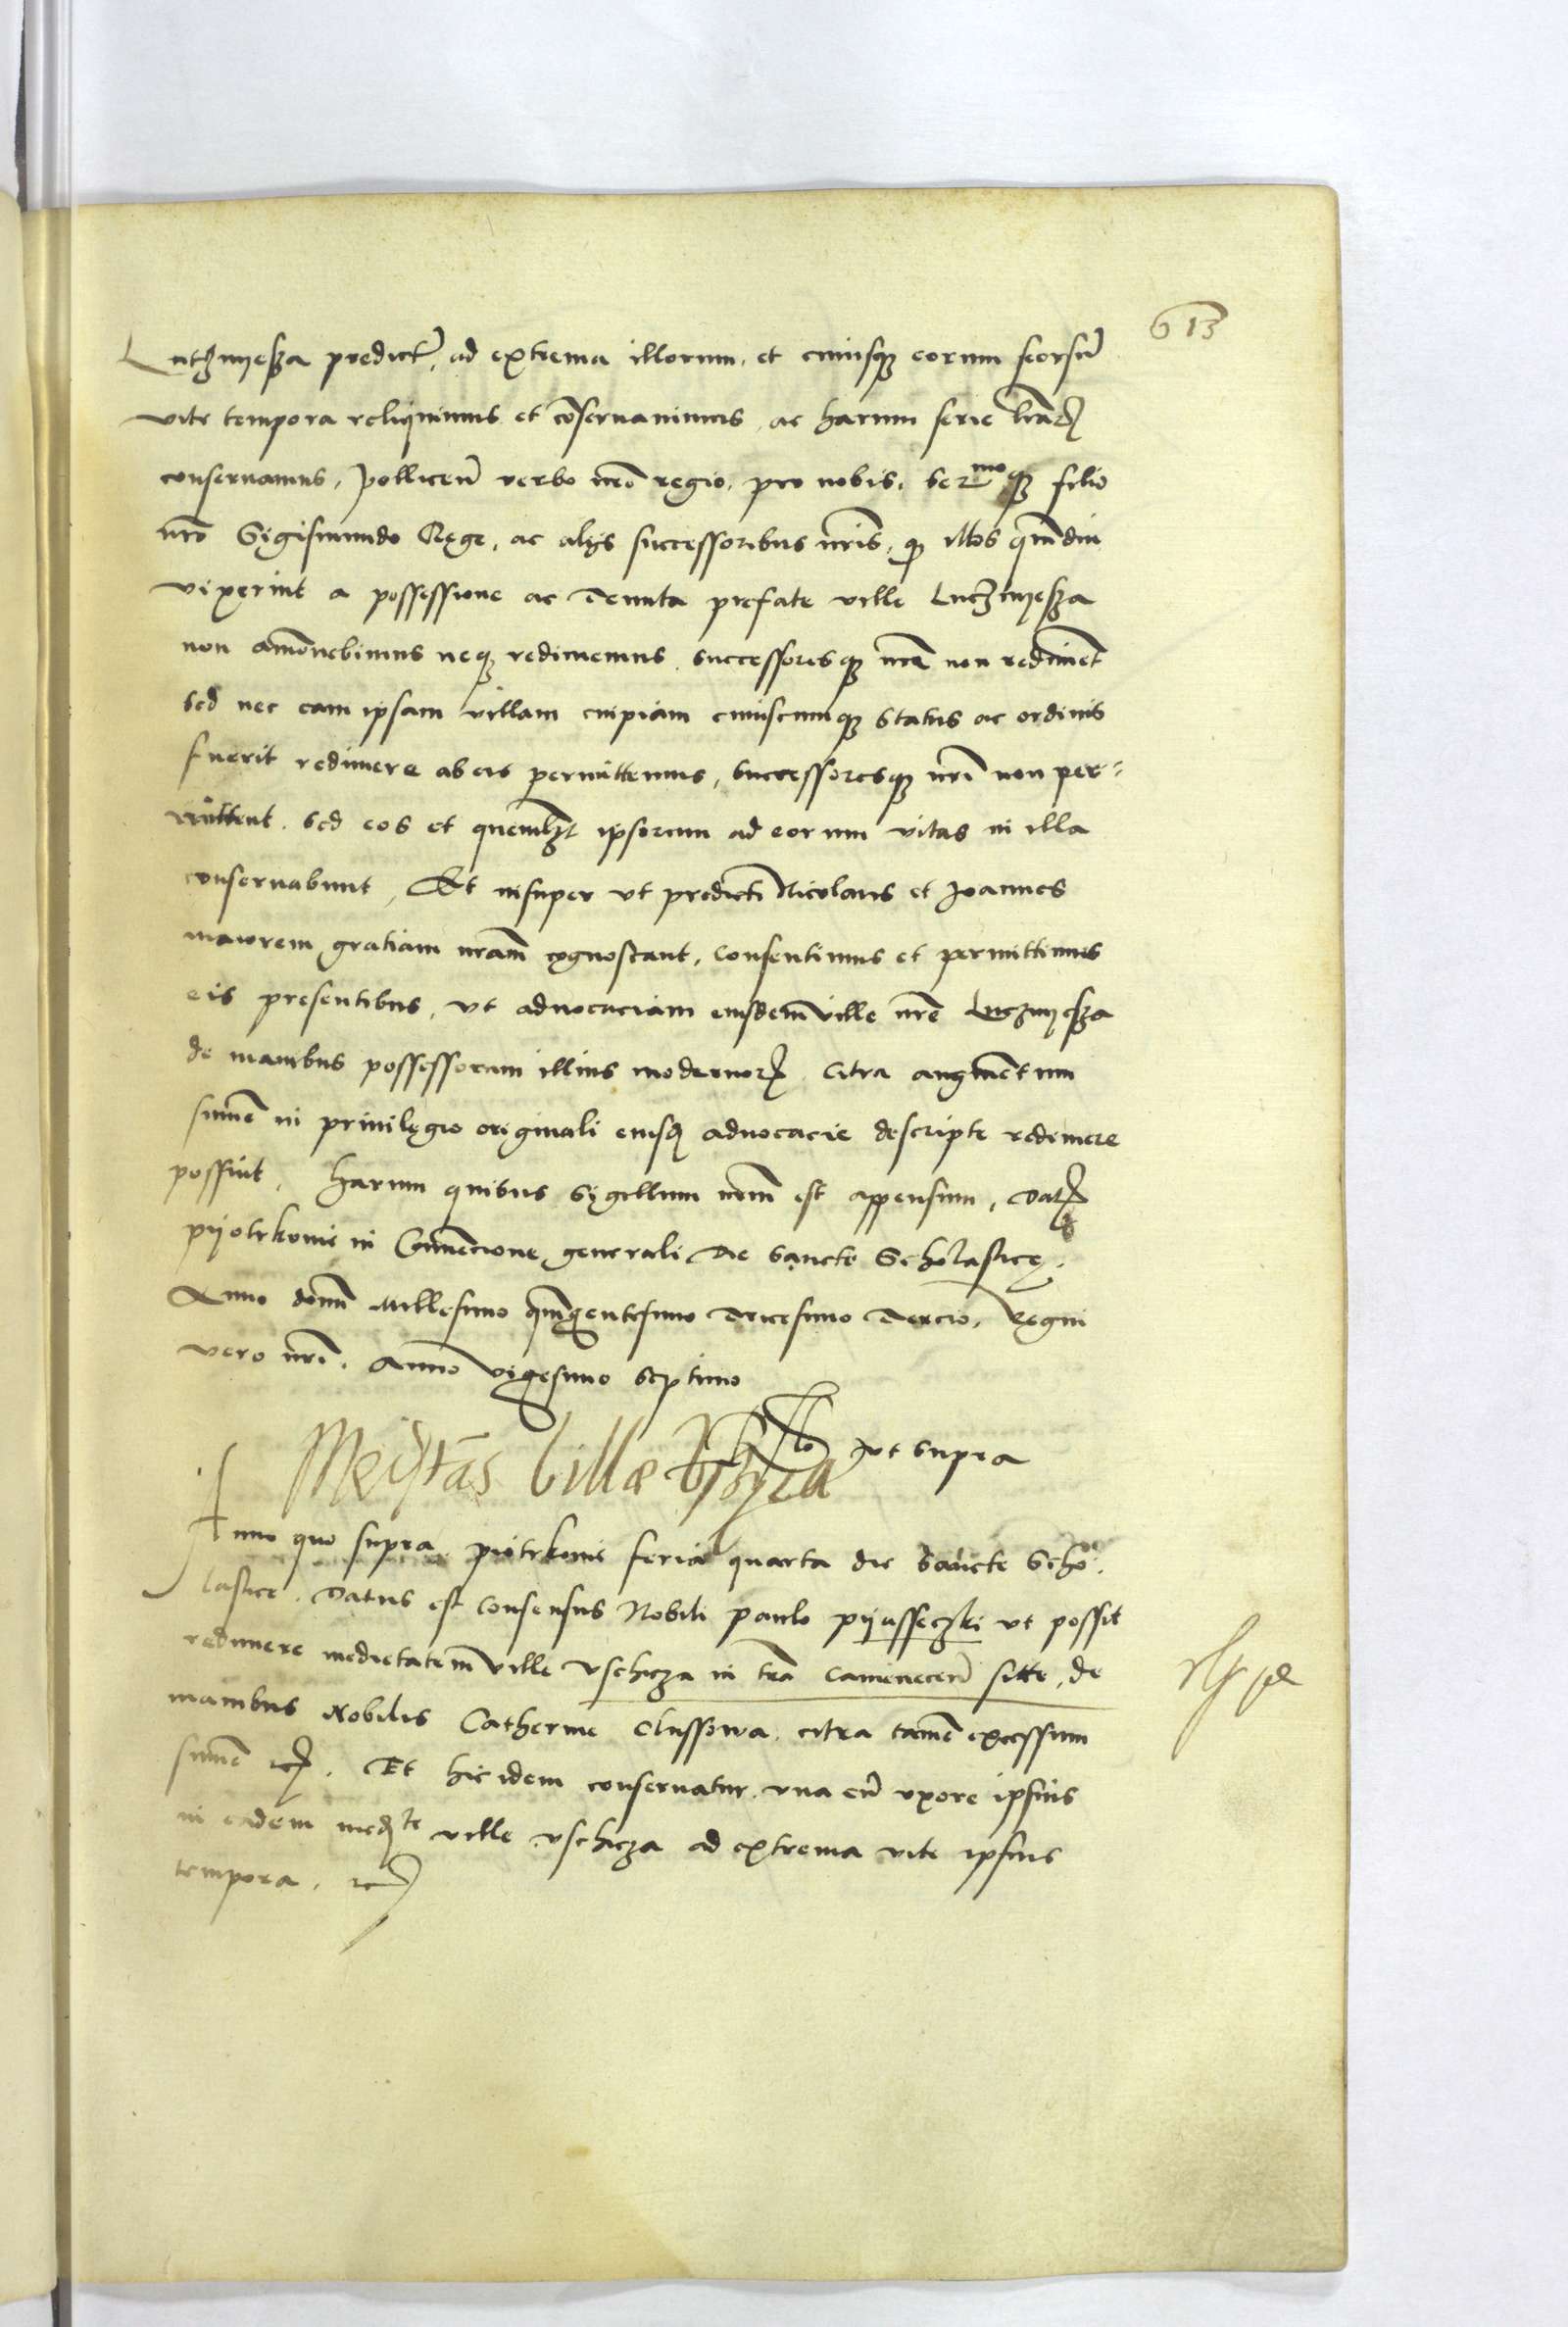 613
Lutzmyesza predict̃, ad extrema illorum, et cuiusq; eorum seorsũ
vite tempora reliquimus et cõservavimus, ac harum serie lr̃arꝝ
conservamus, pollicen̄ verbo nr̃o regio, pro nobis, Serᵐᵒq; filio
nr̃o Sigismundo Rege, ac alijs successoribus nr̃is, q illos qm̃diu
vixerint a possessione ac Tenuta prefate ville Luczmyesza
non amovebimus neq; redimemus, successoresq; nr̃i non rediment
Sed nec eam ipsam villam cuipiam cuiuscumq; status ac ordinis
fuerit redimere ab eis permittemus, Successoresq; nr̃i non per=
mittent. Sed eos et quemlꝫt ipsorum ad eorum vitas in illa
conservabunt, Et insuper ut predicti Nicolaus et Joannes
maiorem gratiam nr̃am cognoscant, Consentimus et permittimus
eis presentibus, ut advocaciam eiusdem ville nr̃e Luczmyesza
de manibus possessorum illius modernorꝝ citra augmentum
summe in privilegio originali eiusd advocacie descripte redimere
possint, Harum quibus Sigillum nr̃m est appensum, Datꝝ
pyotrkovie in Cõventione generali die Sancte Scholasticę.
Anno domi Millesimo quingentesimo Tricesimo Tercio, Regni
vero nr̃i Anno vigesimo Septimo
ut supra
Medtas Villæ
Anno quo supra, piotrkovie feria quarta die Sancte Scho
lastice. Datus est Consensus Nobili paulo pijasseczki ut possit
redimere medietatem ville Uschicza in tr̃a Cameneceñ sitte, de
manibus Nobilis Catherine Olussowa citra tamẽ excessum
summe etc. Et hic idem conservatur una cũ uxore ipsius
in eadem medᵗᵉ ville Uschicza ad extrema vite ipsius
tempora, etc